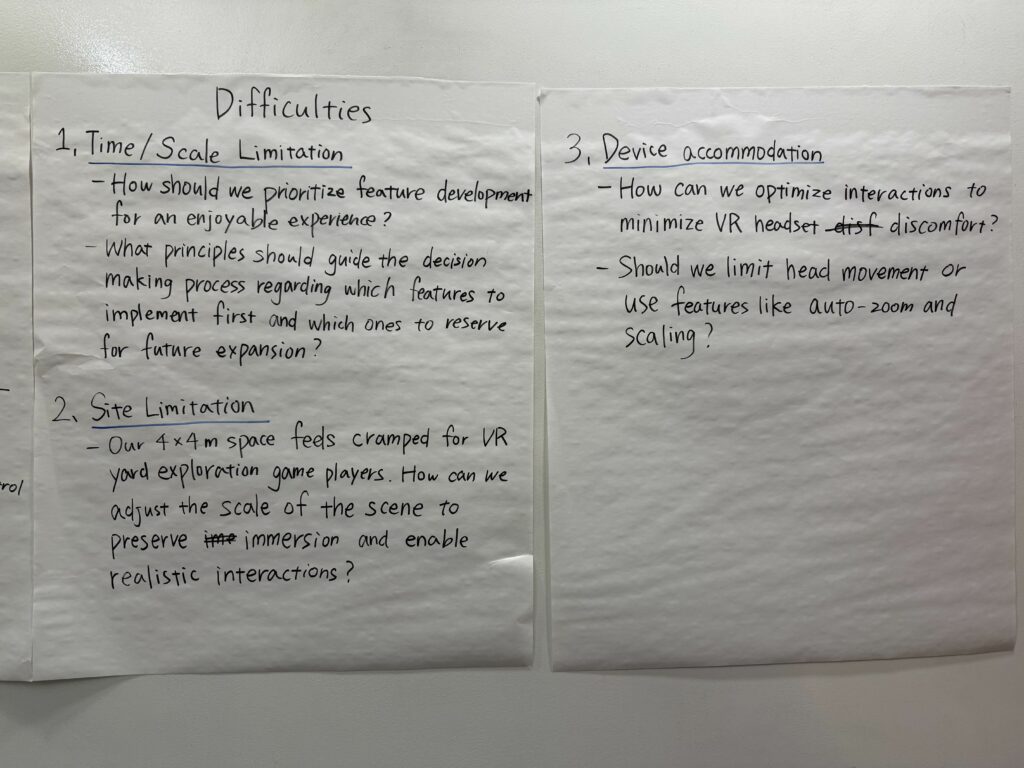 rol
Difficulties
1, Time/Scale Limitation
- How should we prioritize feature development
for an enjoyable experience?
- What principles should guide the decision
making process regarding which features to
implement first and which ones to reserve
for future expansion?
2, Site Limitation
- Our 4×4m space feels cramped for VR
yard exploration game players. How can we
adjust the scale of the scene to
preserve ime immersion and enable
realistic interactions?
3, Device accommodation
- How can we optimize interactions to
minimize VR headset disf discomfort?
- Should we limit head movement or
use features like auto-zoom and
scaling?